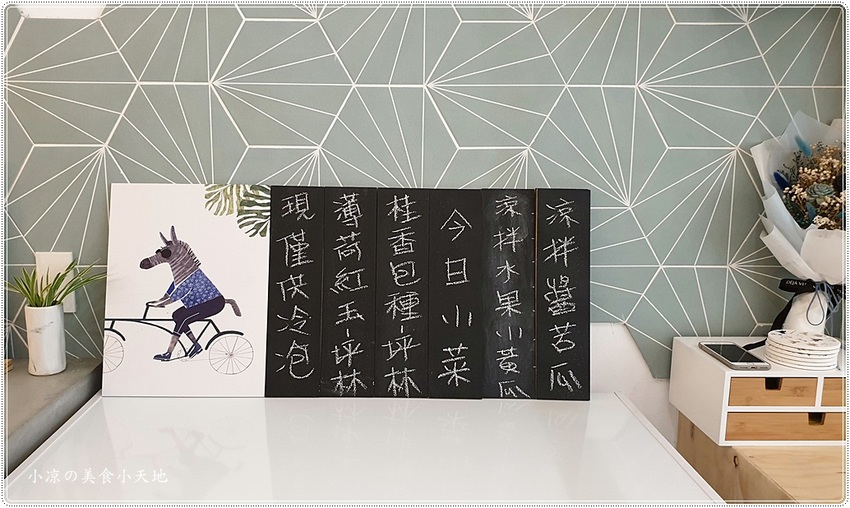 涼拌醬苦瓜
涼拌水果小黃瓜
今日小菜
桂香包種-坪林
薄荷紅玉-坪林
現僅供冷泡
小凉の美食小天地